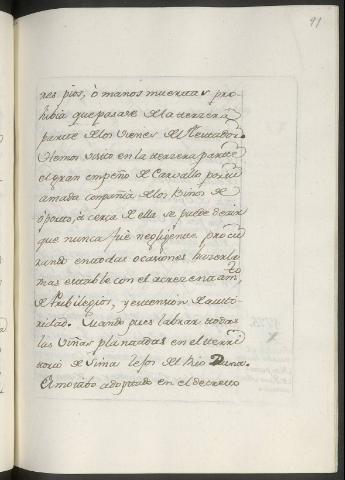 91
nes pios, ò manos muertas pro-
hibia que pasase de la terzera
parte de los vienes de el Testador.
Hemos visto en la terzera parte
el gran empeño de Carvallo por su
amada compañia de los Binos de
oporto, à cerca de ella se puede decir
que nunca fuè negligente procu
rando en todas ocasiones hazerla
mas estable con el acrezentam.to
de Pribilegios, y extension de auto-
ridad. Quando pues labrar todas
las viñas plantadas en el terri
torio de Lima lejos de el Rio Duna.
El motibo adoptado en el decreto